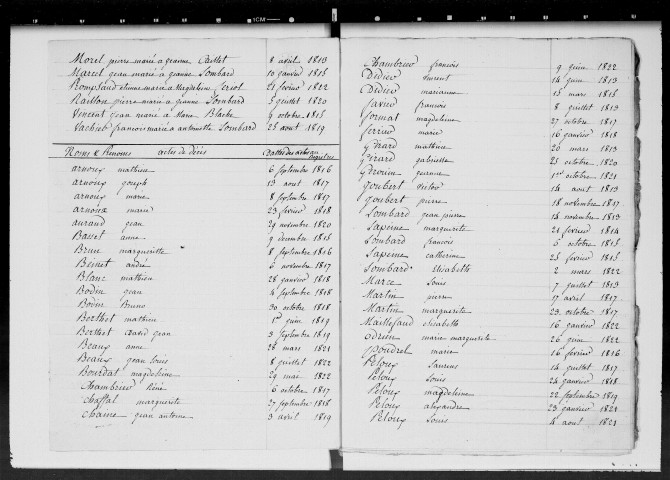 1CM
Morel pierre marié a jeanne Caillet 8 avril 1813
Marcel jean marié a jeanne Lombard 10 janvier 1815
Romplaud etienne marié a Magdeleine 21 fevrier 1822
Raillon pierre marié a jeanne Lombard 5 juillet 1820
Vincent jean marié a Anne Blache 9 octobre 1815
Vachier francois marié a antoinette Lombard 25 aout 1819
Noms & Prenoms actes de décès Dattes des actes au registres
arnoux mathieu 6 septembre 1816
arnoux joseph 13 aout 1817
arnoux marie 8 septembre 1817
arnoux marie 23 fevrier 1818
auraud jean 29 novembre 1820
Basset anne 9 decembre 1815
Brun margueritte 8 septembre 1816
Beinet andré 6 novembre 1817
Blanc mathieu 28 janvier 1818
Bodin jean 4 septembre 1818
Bodin Bruno 30 octobre 1818
Berthet mathieu 1er juin 1819
Berthet david jean 3 septembre 1819
Beaux anne 26 mars 1821
Beaux jean louis 8 juillet 1822
Bourdat magdeleine 29 mai 1822
Chambrier Réné 6 octobre 1817
Chaffal marguerite 27 septembre 1818
Chaine jean antoine 3 avril 1819
Chambrier francois 9 juin 1822
Didier laurent 14 juin 1813
Didier marianne 15 mars 1815
Favier francois 8 juillet 1813
Format magdeleine 27 octobre 1817
Ferrier marie 16 janvier 1818
Girard mathieu 26 mars 1813
Girard gabrielle 25 octobre 1820
Girouin jeanne 1er octobre 1821
Goubert victor 14 aout 1813
Goubert pierre 18 novembre 1817
Lombard jean pierre 14 novembre 1813
Lapeine marguerite 21 fevrier 1814
Lombard francois 5 octobre 1815
Lapeine catherine 25 fevrier 1815
Lombard Elisabeth 2 mars 1822
Marce Louis 7 juillet 1813
Martin pierre 17 avril 1817
Martin marguerite 23 octobre 1817
Maillefaud elisabeth 16 janvier 1822
Odrien marie marguerite 26 juin 1822
Poudrel marie 16 fevrier 1816
Peloux Laurens 14 juillet 1817
Peloux Louis 24 janvier 1818
Peloux magdeleine 22 septembre 1819
Peloux alexandre 23 janvier 1821
Peloux Louis 4 aout 1821